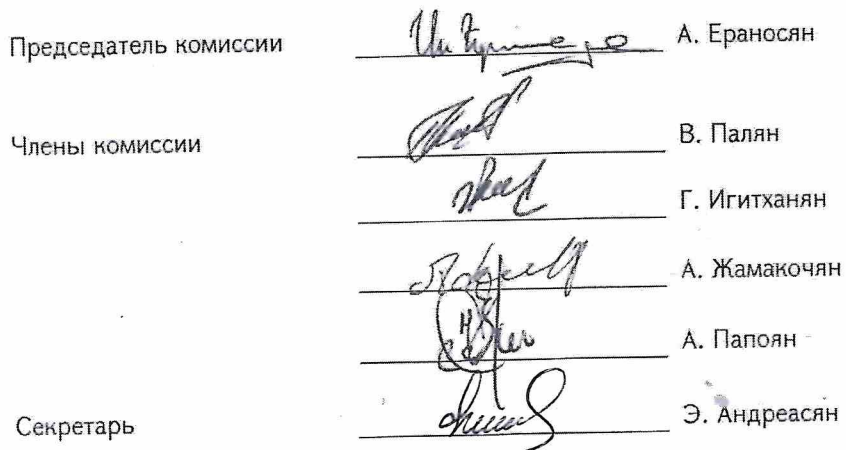 Председатель комиссии А. Ераносян
Члены комиссии В. Палян
Г. Игитханян
А. Жамакочян
А. Папоян
Секретарь Э. Андреасян